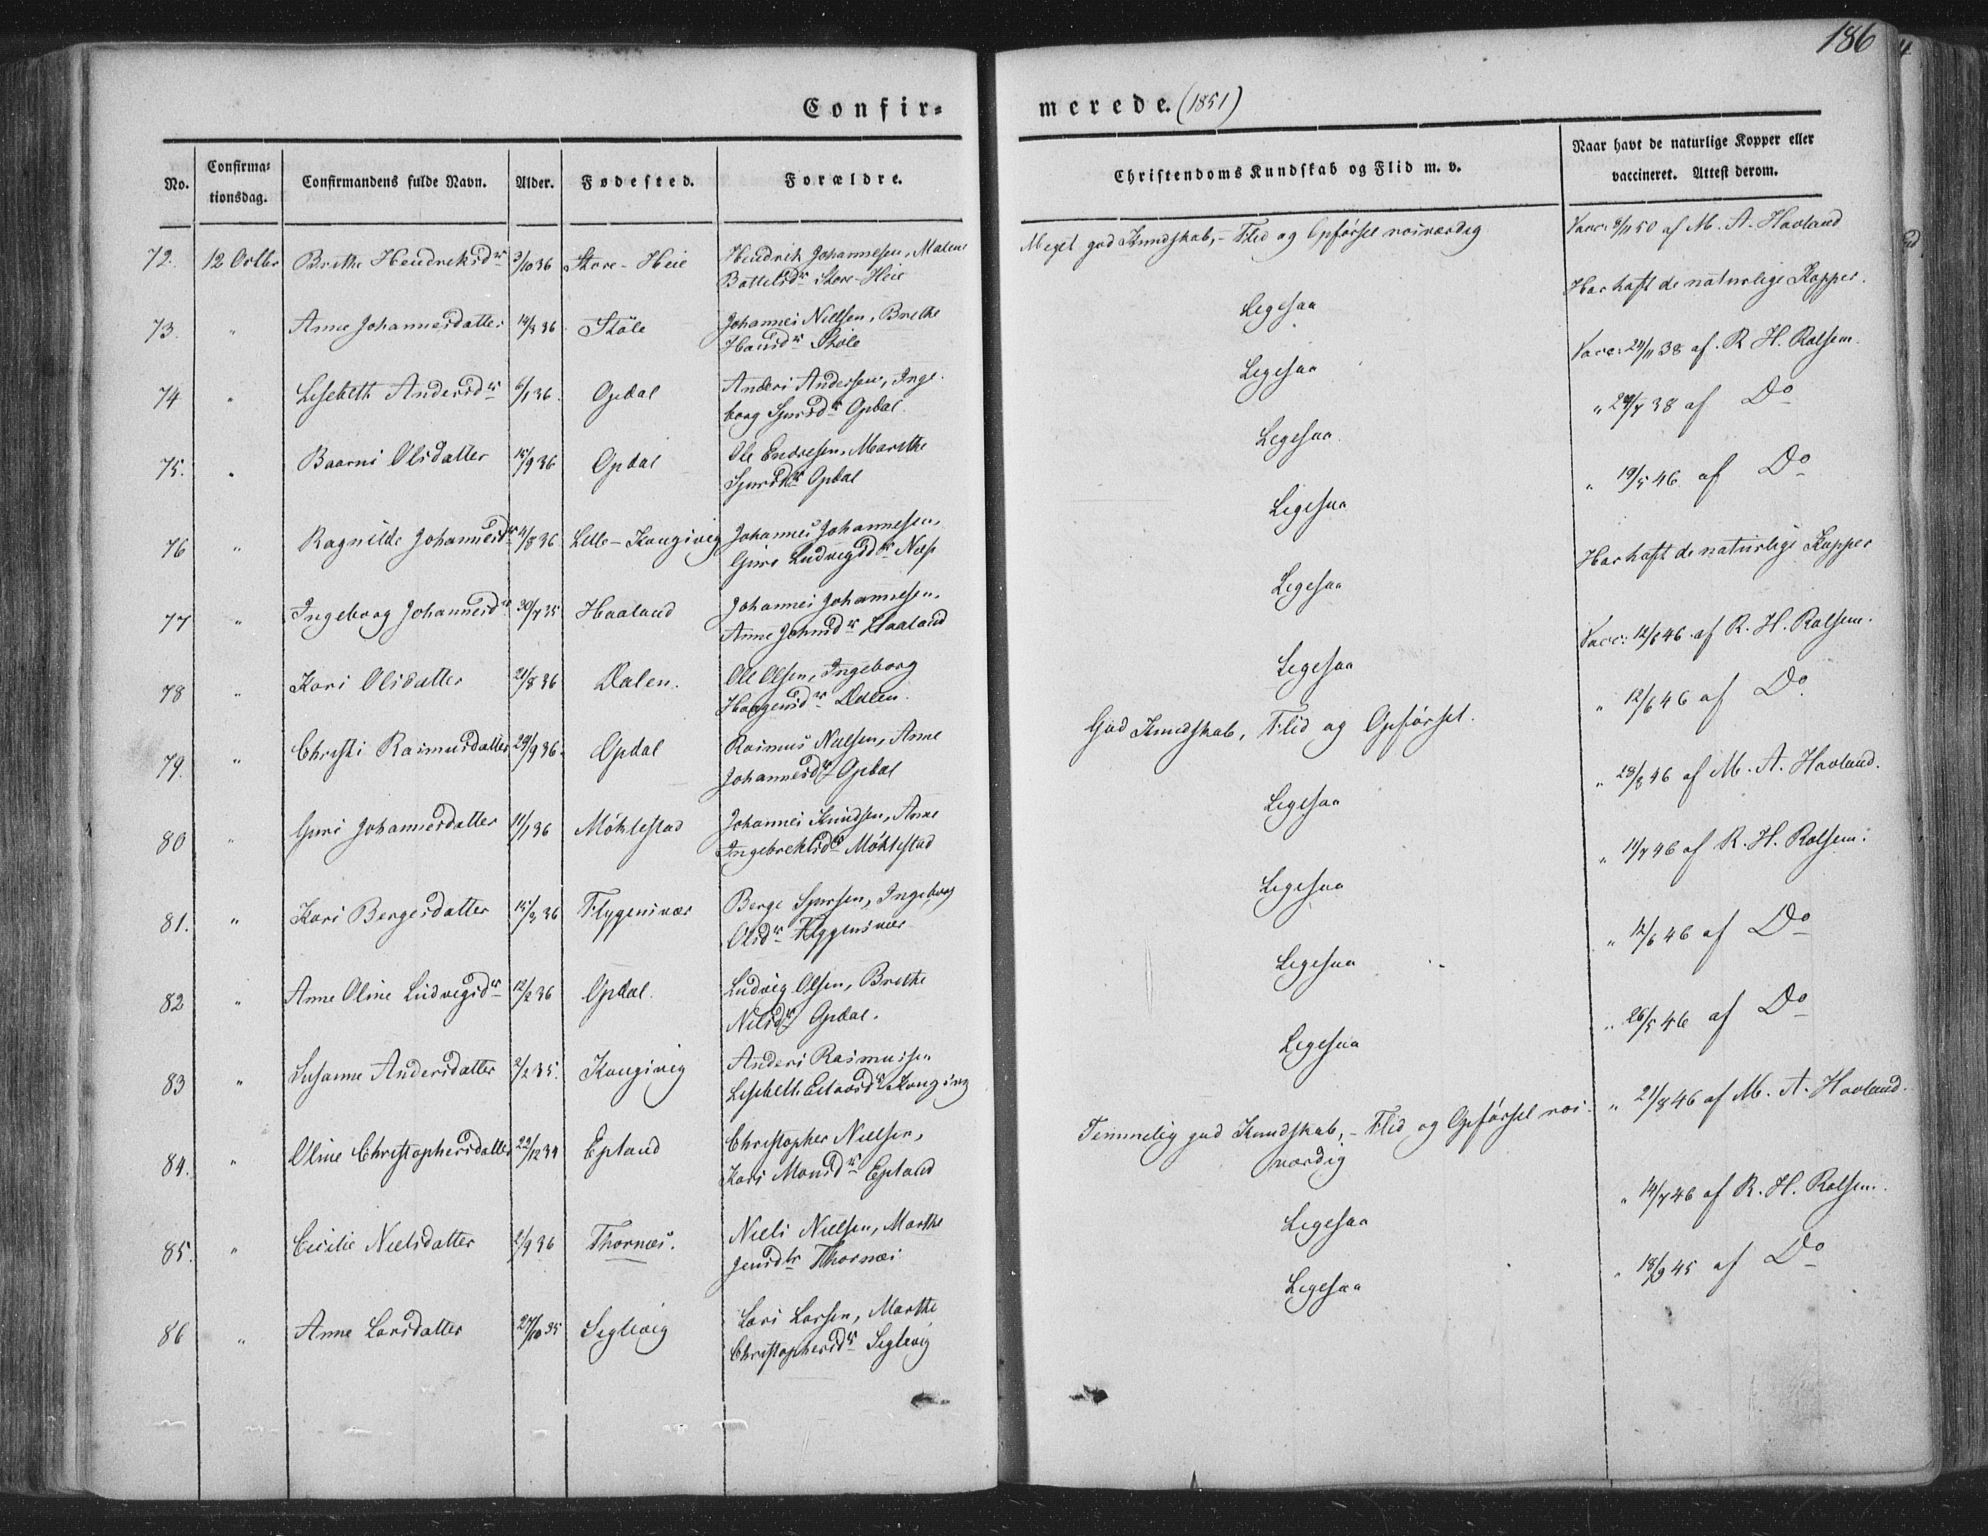 186
Confir-
merede. (1851)
No.
Confirma-
tionsdag.
Confirmandens fulde Navn.
Alder.
Fødested.
Forældre.
Christendoms Kundskab og Flid m. v.
Naar havt de naturlige Kopper eller
vaccineret. Attest derom.
72. 12 Octbr Brithe Hendriksdr 3/10 36 Store-Heie Hendrik Johannesen, Malene
Bottelsdr Store-Heie
Meget god Kundskab, - Flid og Opførsel roisværdig
Vacc: 9/11 50 af M. A. Havland
73. " Anne Johannesdatter 14/3 36 Støle Johannes Nielsen, Brethe
Hansdr Støle
Ligesaa
Har haft de naturlige Kopper.
74 " Lisebeth Andersdr 6/1 36. Opdal Anders Andersen, Inge-
borg Sjursdr Opdal.
Ligesaa
Vacc: 24/11 38 af R. H. Rolsem.
75. " Baarni Olsdatter 15/9 36 Opdal Ole Endresen, Marethe
Sjursdtr Opdal
Ligesaa.
" 24/7 38 af Do
76 " Ragnilde Johannesdr 4/8 36 Lille-Kongsvig Johannes Johannesen,
Guro Ludvigsdr Næss
Ligesaa
" 19/5 46 af Do
77 " Ingeborg Johannesdr 30/7 35 Haaland Johannes Johannesen,
Anne Johnsdr Haaland
Ligesaa
Har haft de naturlige Kopper
78 " Kari Olsdatter 21/8 36 Dalen. Ole Olsen, Ingeborg
Haagensdr Dalen.
Ligesaa
Vacc: 12/6 46 af R. H. Rolsem.
79. " Christi Rasmusdatter 29/9 36. Opdal Rasmus Nielsen, Anne
Johannesdr Opdal
God Kundskab, Flid og Opførsel.
" 12/6 46 af Do
80 " Guri Johannesdatter 11/1 36 Møklestad Johannes Knudsen, Anne
Ingebrektsdr Møklestad
Ligesaa
" 28/8 46 af M. A. Havland.
81. " Kari Bergesdatter 15/3 36 Flygensvær Berge Sjursen, Ingeborg
Olsdr Flygensvær
Ligesaa
" 11/7 46 af R. H. Rolsem.
82 " Anne Oline Ludvigsdr 12/2 36 Opdal. Ludvig Olsen, Brethe
Nilsdr Opdal.
Ligesaa
" 12/6 46 af Do
83 " Susanne Andersdatter 2/2 35. Kongsvig Anders Rasmussen
Lisbeth Kongsvig
Ligesaa
" 26/5 46 af Do
84. " Oline Christophersdatter 22/12 34 Epland Christopher Nielsen,
Kari Monsdr Epland
Temmelig god Kundskab, - Flid og Opførsel rois-
værdig
" 21/8 46 af M. A. Havland.
85. " Cicilie Nielsdatter 2/9 36 Thornæs. Niels Nielsen, Marthe
Jensdtr Thornæs
Ligesaa
" 14/7 46 af R. H. Rolsem.
86 " Anne Larsdatter 27/10 35 Seglevig Lars Larsen, Marthe
Christophersdr Seglevig
Ligesaa
" 18/9 45 af Do